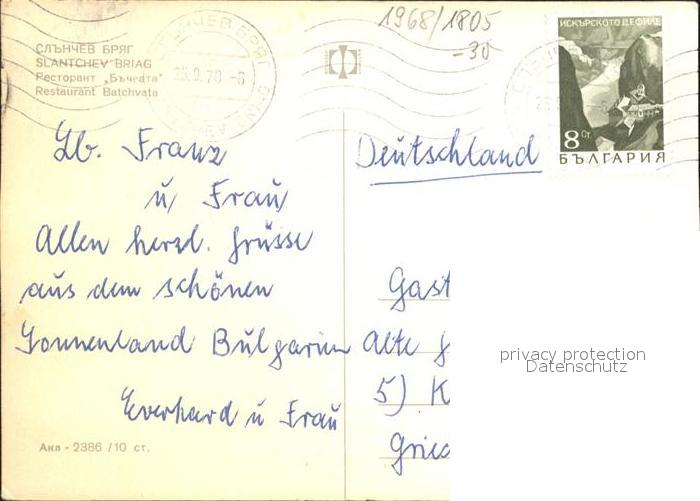 СЛЪНЧЕВ БРЯГ
SLANTCHEV BRIAG
Ресторант „Бъчвата“
Restaurant Batchvata
1968/1805
-30
ИСКЪРСКОТО ДЕФИЛЕ
8 СТ.
БЪЛГАРИЯ
Lb. Franz
u. Frau
Allen herzl. Grüsse
aus dem schönen
Sonnenland Bulgarien
Everhard u Frau
Deutschland
Gast
Alte
5) K
privacy protection
Datenschutz
Акл - 2386 /10 ст.